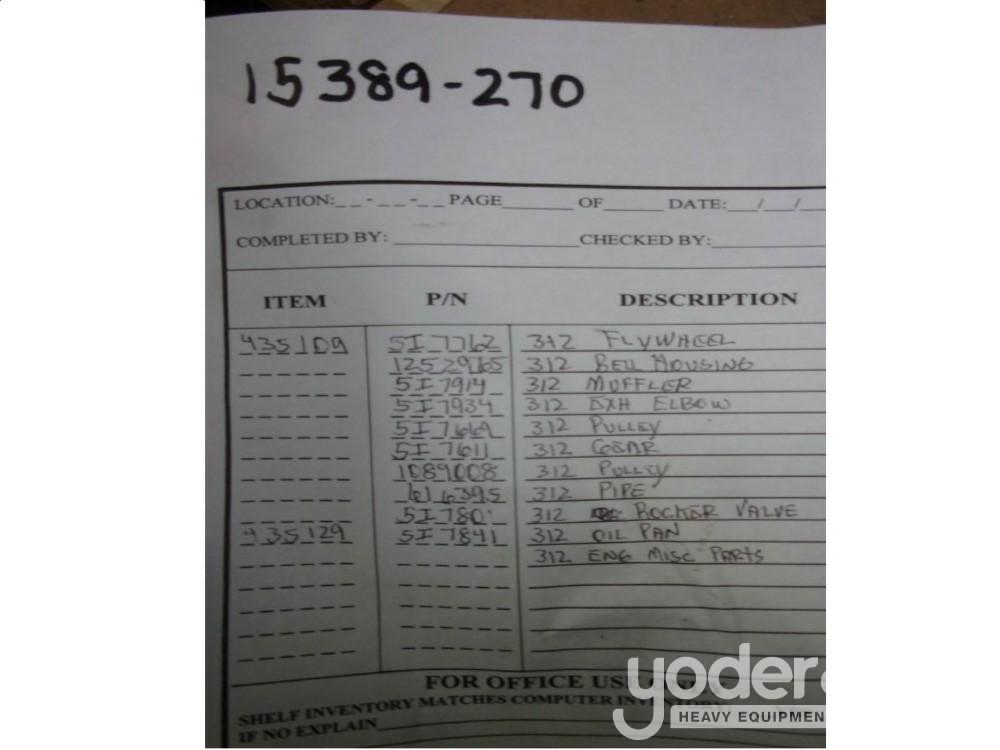 15389-270
LOCATION:_ _-_ _-_ _ PAGE______ OF_____ DATE:__/__/__
COMPLETED BY: ________________CHECKED BY:__________
ITEM P/N DESCRIPTION
435109 5I 7762 312 FLYWHEEL
1252965 312 BELL HOUSING
5I 7914 312 MUFFLER
5I 7934 312 EXH ELBOW
5I 7669 312 PULLEY
5I 7611 312 GEAR
1089008 312 PULLEY
616395 312 PIPE
5I 780 312 ROCKER VALVE
435129 5I 7841 312 OIL PAN
312 ENG MISC PARTS
FOR OFFICE USE
SHELF INVENTORY MATCHES COMPUTER
IF NO EXPLAIN
yoder
HEAVY EQUIPMEN